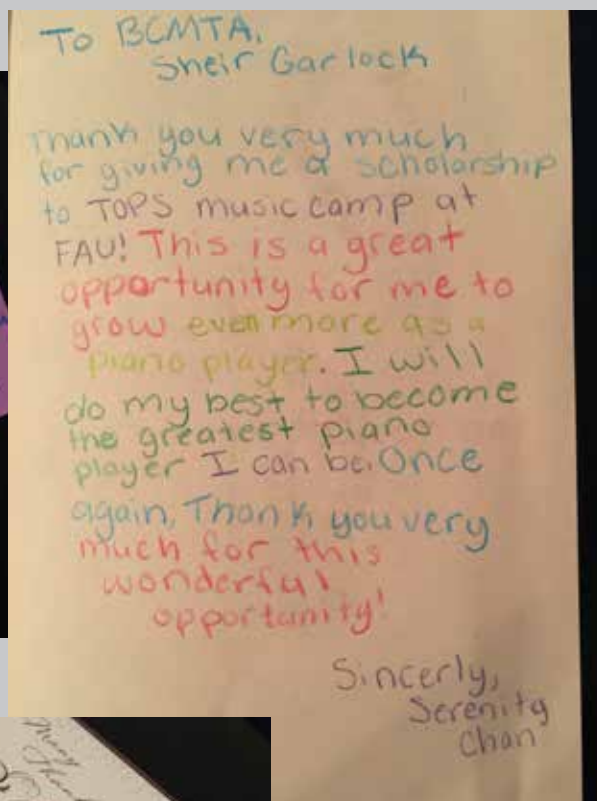 To BCMTA,
Sheir Garlock
Thank you very much
for giving me a scholarship
to TOPS music camp at
FAU! This is a great
opportunity for me to
grow even more as a
piano player. I will
do my best to become
the greatest piano
player I can be. Once
again, Thank you very
much for this
wonderful
opportunity!
Sincerly,
Serenity
Chan
many